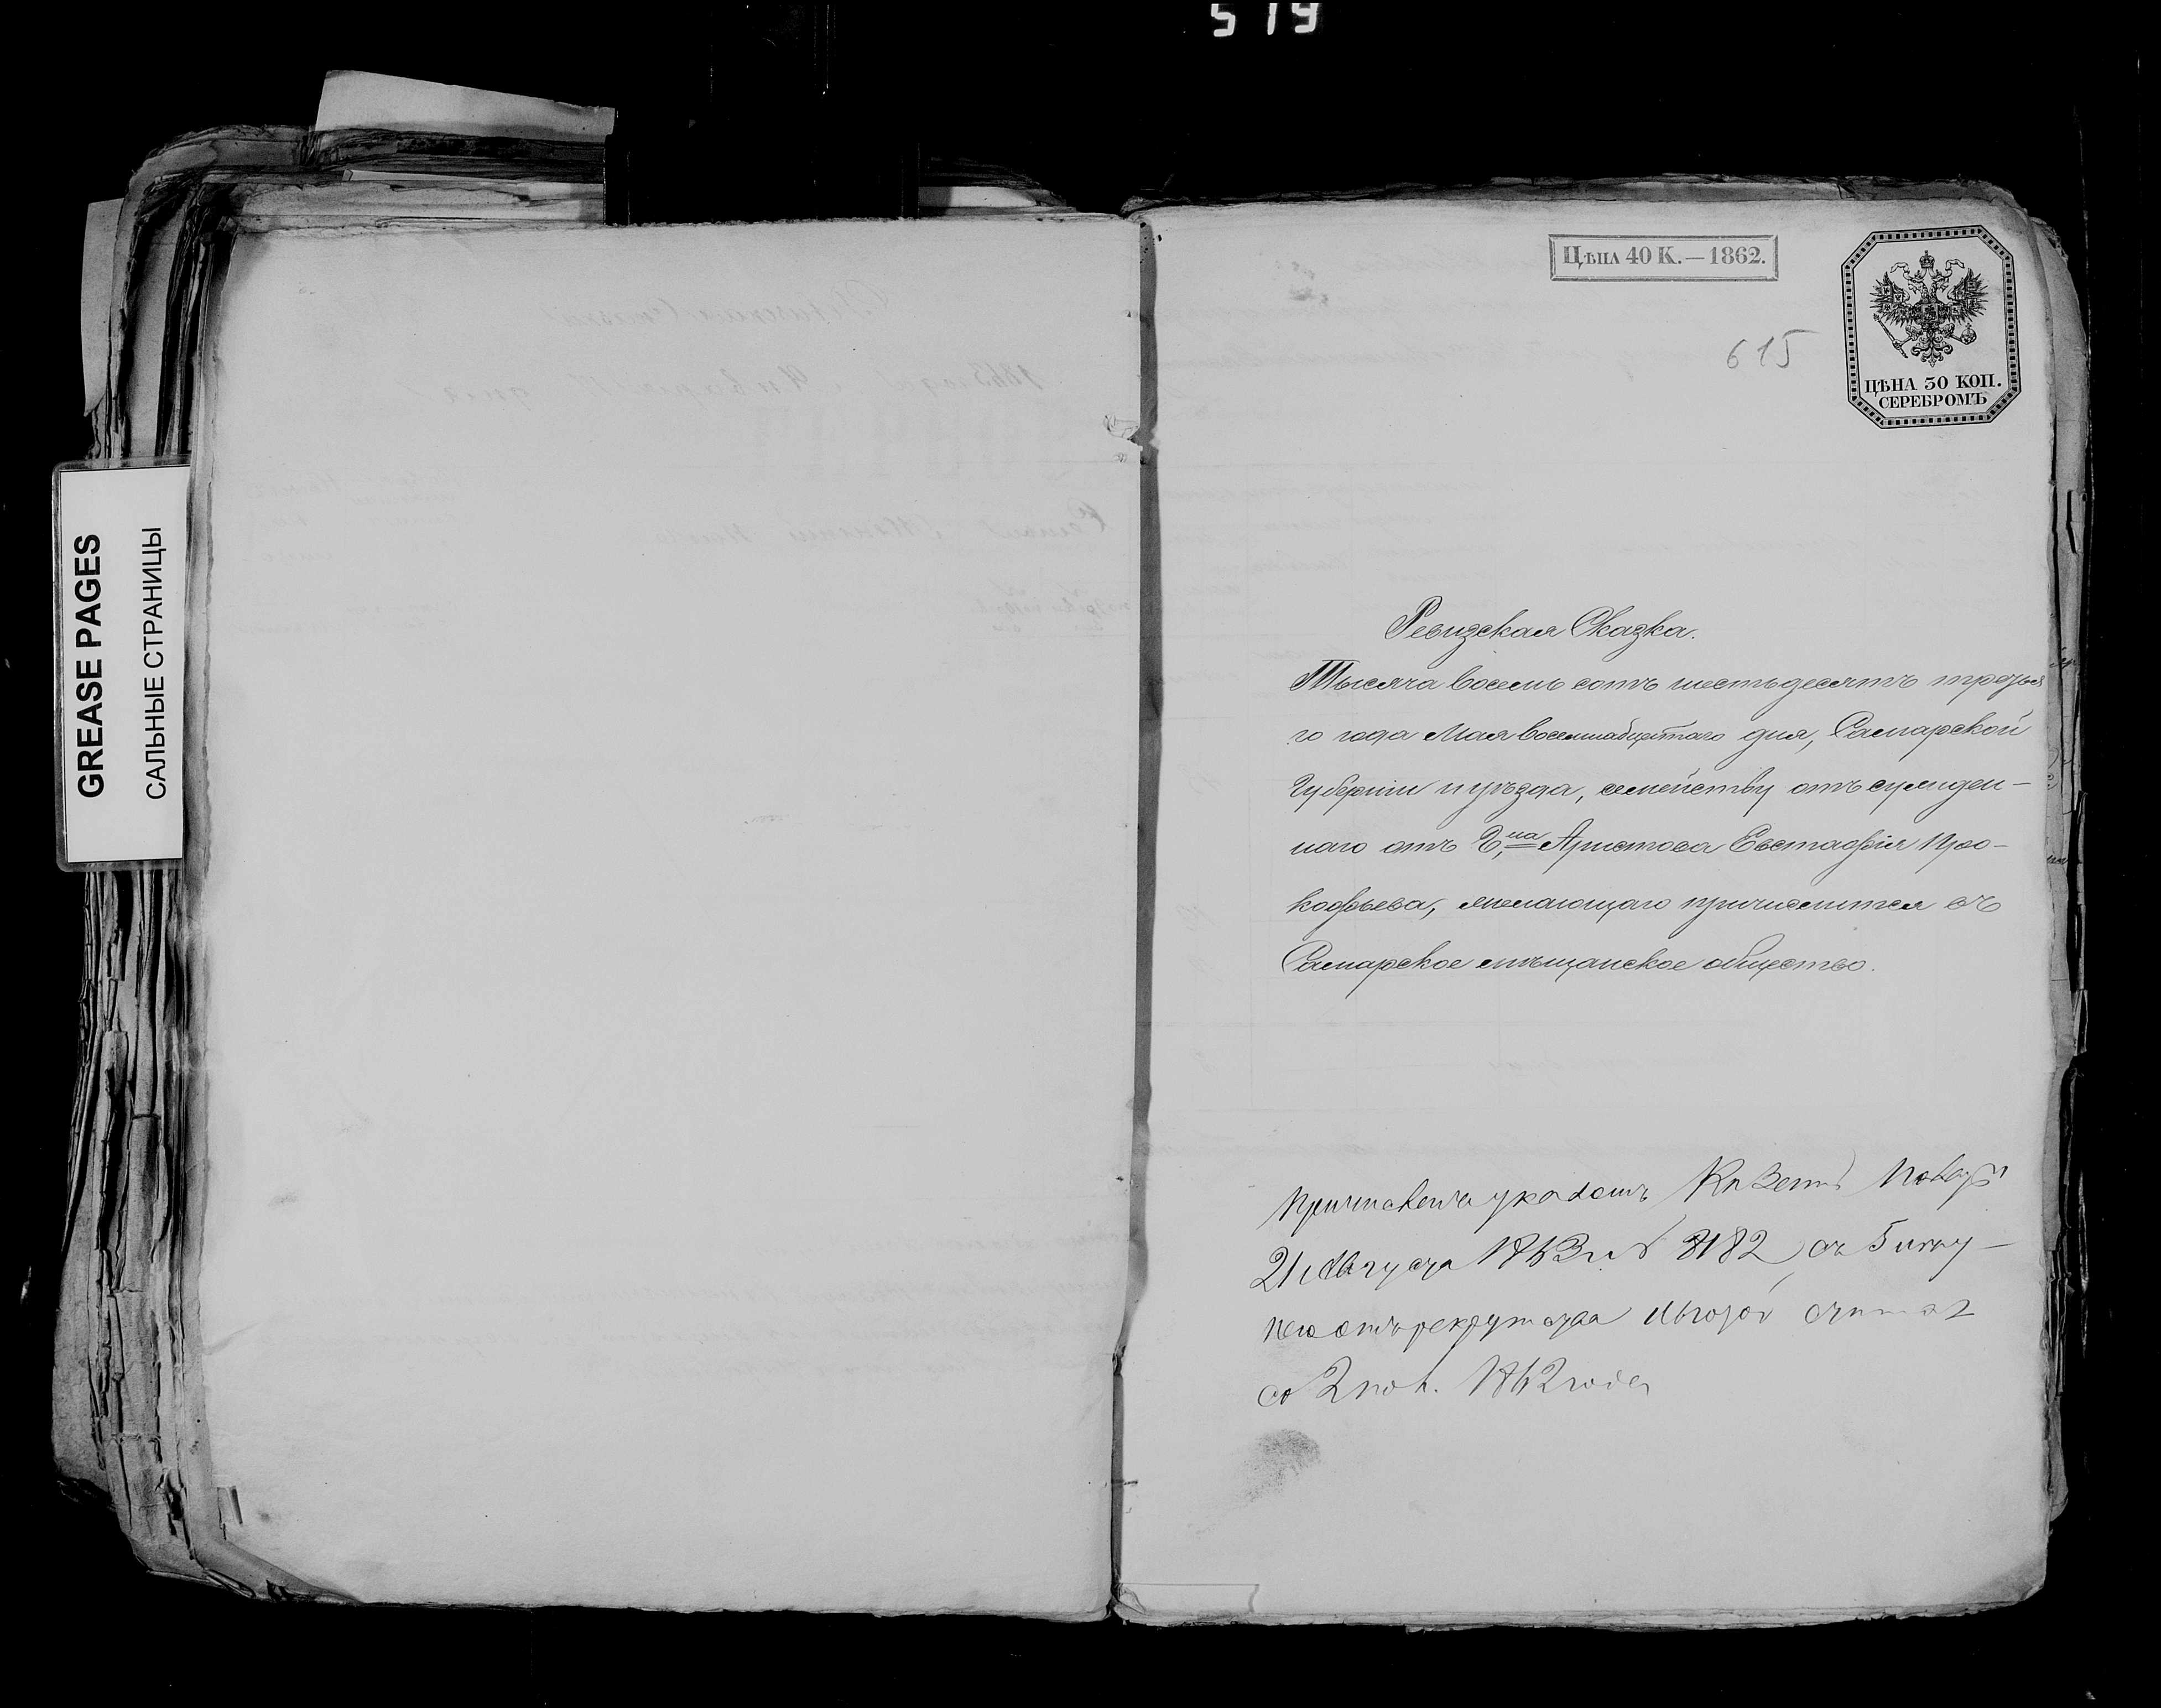 519
GREASE PAGES
САЛЬНЫЕ СТРАНИЦЫ
ЦѢНА 40 К.—1862.
ЦѢНА 30 КОП.
СЕРЕБРОМЪ
615
Ревизская Сказка.
Тысяча восемь сотъ шестьдесятъ третья
го года Мая восемнадцатаго дня, Самарской
Губерніи и уѣзда, семейству отъсужден-
наго отъ Г,на Аристова Евстафія Про-
кофьева, желающаго причислится въ
Самарское мѣщанское общество.
Причислены указомъ Казен
21 Августа 1863 г. № 8182 съ 5
отъ рекрутства льготой
со 2 1862 года